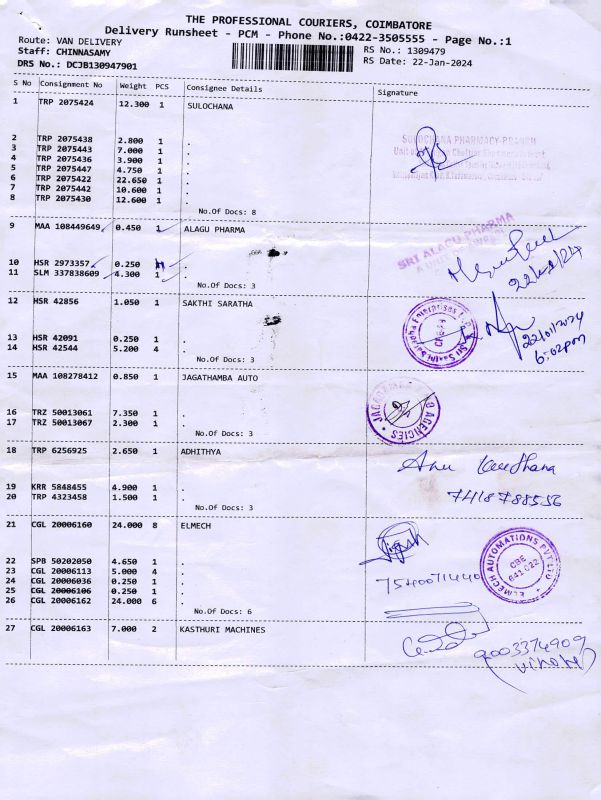 THE PROFESSIONAL COURIERS, COIMBATORE
Delivery Runsheet - PCM - Phone No.:0422-3505555 - Page No.:1
Route: VAN DELIVERY
Staff: CHINNASAMY
RS No.: 1309479
DRS No.: DCJB130947901
RS Date: 22-Jan-2024
S No Consignment No Weight PCS Consignee Details Signature
1 TRP 2075424 12.300 1 SULOCHANA
2 TRP 2075438 2.800 1 .
SULOCHANA PHARMACY-BRANCH
3 TRP 2075443 7.000 1 .
4 TRP 2075436 3.900 1 .
5 TRP 2075447 4.750 1 .
6 TRP 2075422 22.650 1 .
7 TRP 2075442 10.600 1 .
8 TRP 2075430 12.600 1 .
No.Of Docs: 8
9 MAA 108449649 0.450 1 ALAGU PHARMA
SRI ALAGU PHARMA
10 HSR 2973357 0.250 .
11 SLM 337838609 4.300 1 .
22/01/24
No.Of Docs: 3
12 HSR 42856 1.050 1 SAKTHI SARATHA
22/01/2024
6:02pm
13 HSR 42091 0.250 1 .
14 HSR 42544 5.200 4 .
No.Of Docs: 3
15 MAA 108278412 0.850 1 JAGATHAMBA AUTO
AGENCIES
16 TRZ 50013061 7.350 1 .
17 TRZ 50013067 2.300 1 .
No.Of Docs: 3
18 TRP 6256925 2.650 1 ADHITHYA
19 KRR 5848455 4.900 1 .
20 TRP 4323458 1.500 1 .
7418788556
No.Of Docs: 3
21 CGL 20006160 24.000 8 ELMECH
ELMECH AUTOMATIONS PVT LTD
CBE
641 022
22 SPB 50202050 4.650 1 .
23 CGL 20006113 5.000 4 .
24 CGL 20006036 0.250 1 .
7540071440
25 CGL 20006106 0.250 1 .
26 CGL 20006162 24.000 6 .
No.Of Docs: 6
27 CGL 20006163 7.000 2 KASTHURI MACHINES
9003374909